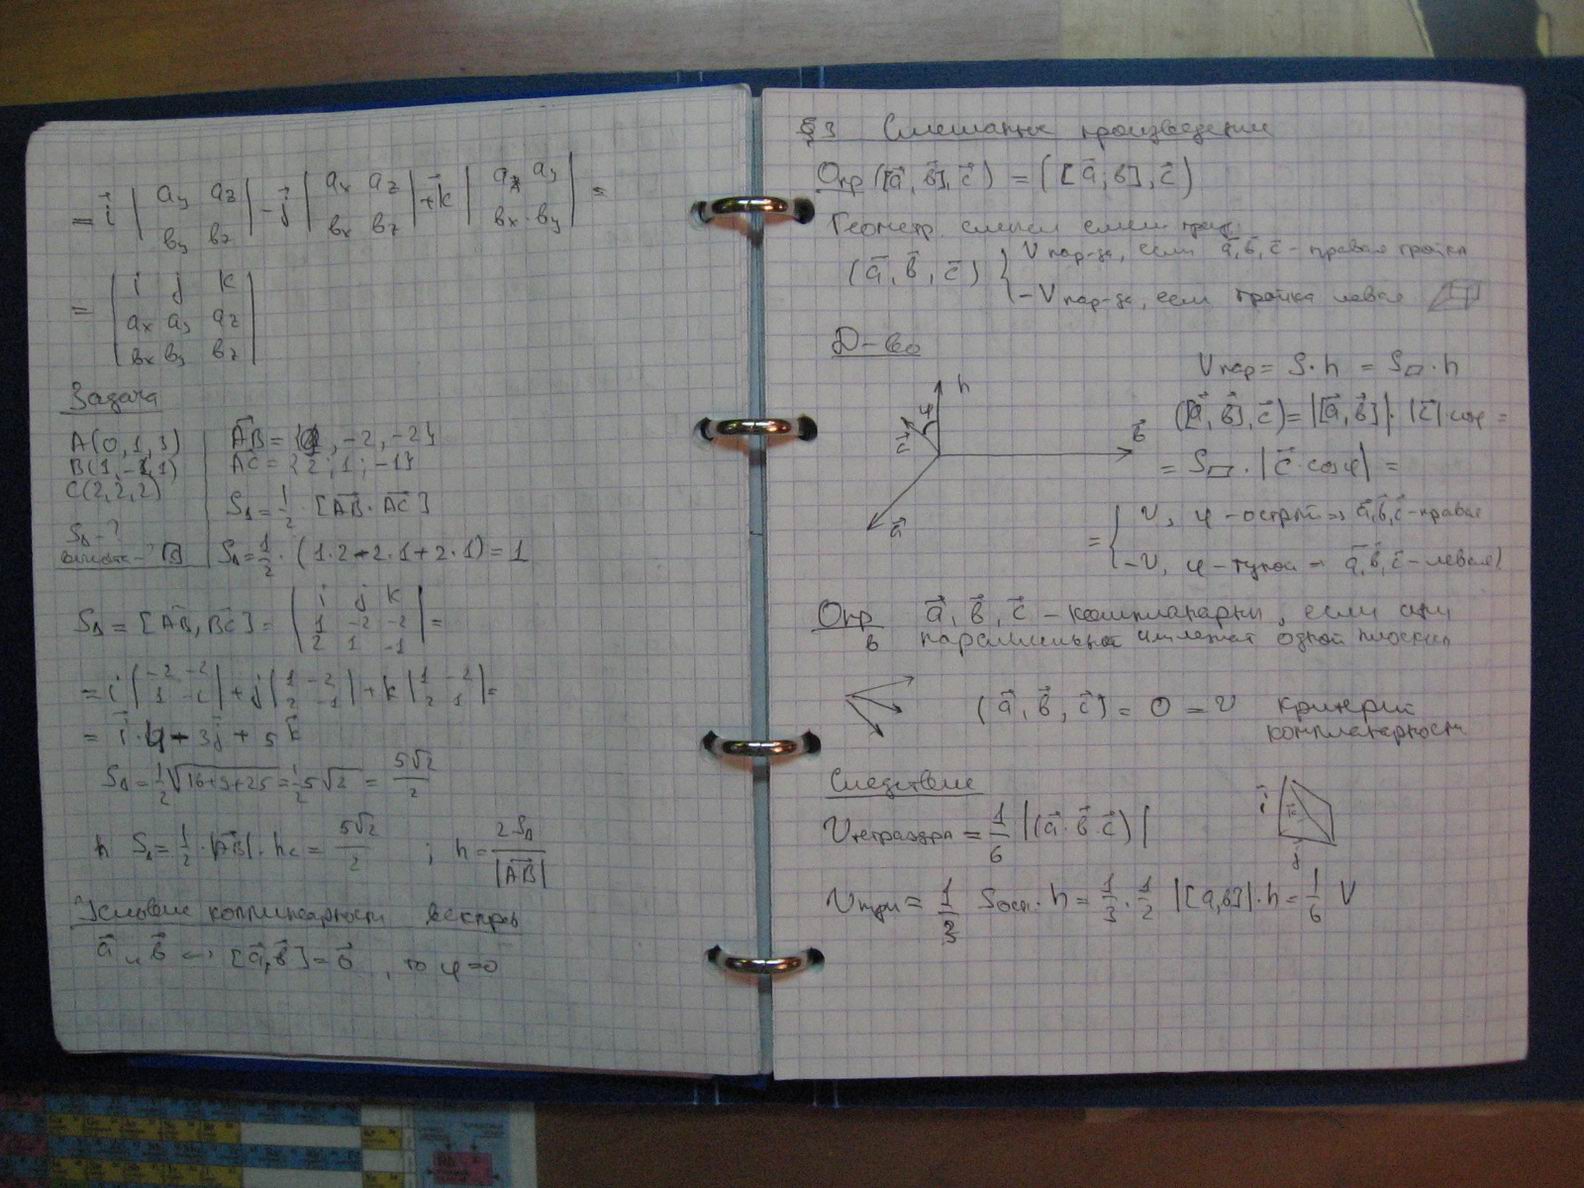 = i⃗ | ay az | - j⃗ | ax az | + k⃗ | ax ay | =
вy вz вx вz вx · вy
= | i j k |
ax ay az
вx вy вz
Задача
A(0, 1, 3)
B(1, -1, 1)
C(2, 2, 2)
S∆ - ?
AB = {1, -2, -2}
AC = {2; 1; -1}
S∆ = 1/2 · [AB · AC]
S∆ = 1/2 · (1·2 - 2·1 + 2·1) = 1
S∆ = [AB, BC] = | i j k | =
1 -2 -2
2 1 -1
= i | -2 -2 | + j | 1 -2 | + k | 1 -2 | =
1 -1 2 -1 2 1
= i⃗ · 4 - 3j + 5k⃗
S∆ = 1/2 √16+9+25 = 1/2 5√2 = 5√2/2
h S∆ = 1/2 · |AB| · hc = 5√2/2 ; h = 2S∆/|AB|
Условие коллинеарности векторов
a⃗ и в⃗ ↔ [a⃗, в⃗] = 0⃗, то φ=0
§3 Смешанное произведение
Опр ([a⃗, в⃗], c⃗) = ([a⃗, в], c⃗)
Геометр. смысл смеш
(a⃗, в⃗, c⃗) { V пар-да, если a⃗, в⃗, c⃗ - правая тройка
-V пар-да, если тройка левая
Д-во
V пар = S · h = S▱ · h
([a⃗, в⃗], c⃗) = |[a⃗, в⃗]| · |c⃗| · cosφ =
= S▱ · |c⃗ · cosφ| =
h
φ
c⃗
в⃗
a⃗
= { V, φ - острый ⇒ a⃗, в⃗, c⃗ - правая
-V, φ - тупой ⇒ a⃗, в⃗, c⃗ - левая
Опр a⃗, в⃗, c⃗ - компланарны, если они
в параллельной одной плоскости
(a⃗, в⃗, c⃗) = 0 = V критерий
компланарности
Следствие
Vтетраэдра = 1/6 |(a⃗ · в⃗ · c⃗)|
i⃗
k
j
Vпир = 1/3 Sосн · h = 1/3 · 1/2 |[a, в]| · h = 1/6 V